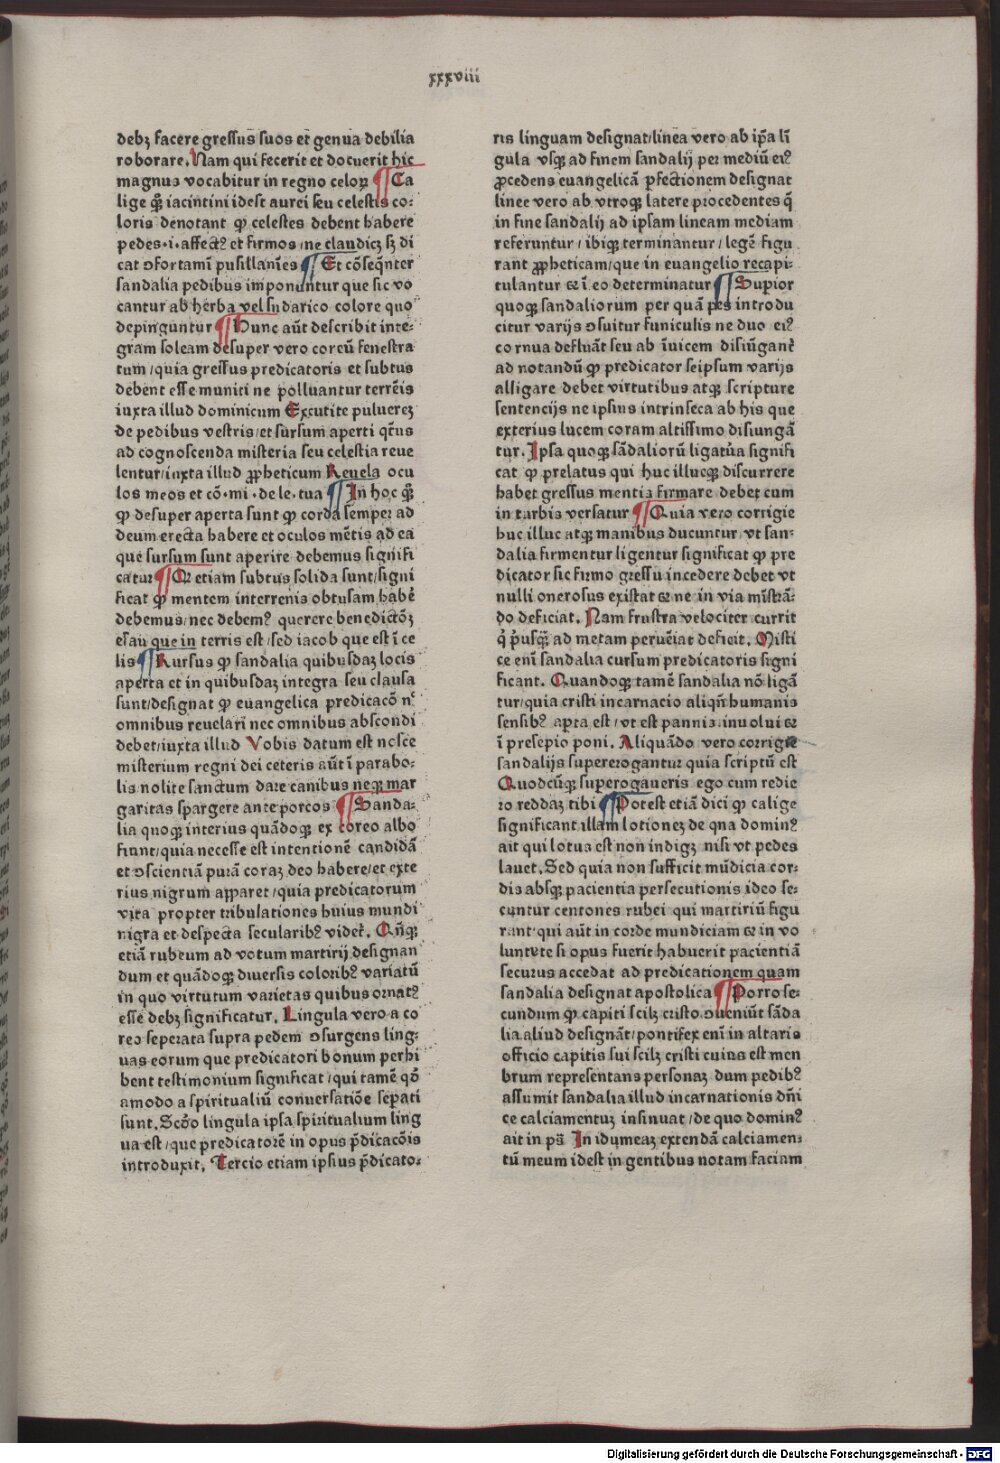 xxxviii
debꝫ facere gressus̄ suos et genua debilia
roborare. Nam qui fecerit et docuerit hic
magnus vocabitur in regno celoꝝ ¶ Ca
lige qm̄ iacintini idest aurei seu celestis co⸗
loris denotant ꝙ celestes debent habere
pedes.i.affectꝰ et firmos / ne claudicꝫ sꝫ di
cat ↄfortamī pusillanīes ¶ Et cōseq̄nter
sandalia pedibus imponuntur que sic vo
cantur ab herba vel sudarico colore quo
depinguntur ¶ Hunc aūt describit inte⸗
gram soleam desuper vero coreū fenestra
tum / quia gressus predicatoris et subtus
debent esse muniti ne polluantur terrēis
iuxta illud dominicum Excutite puluereꝫ
de pedibus vestris / et sursum aperti qt̄us
ad cognoscenda misteria seu celestia reue
lentur / iuxta illud ꝓpheticum Reuela ocu
los meos et cō.mi.de le.tua ¶ In hoc qm̄
ꝙ desuper aperta sunt ꝙ corda semper ad
deum erecta habere et oculos mētis ad ea
que sursum sunt aperire debemus signifi
catur ¶ Qr etiam subtus solida sunt / signi
ficat ꝙ mentem interrenis obtusam habē
debemus / nec debemꝰ querere benedictōꝫ
esau que in terris est / sed iacob que est ī ce
lis ¶ Rursus ꝙ sandalia quibusdaꝫ locis
aperta et in quibusdaꝫ integra seu clausa
sunt / designat ꝙ euangelica predicacō nc̄
omnibus reuelari nec omnibus abscondi
debet / iuxta illud Vobis datum est nosce
misterium regni dei ceteris aūt ī parabo⸗
lis nolite sanctum dare canibus neqꝫ mar
garitas spargere ante porcos ¶ Sanda⸗
lia quoqꝫ interius quādoqꝫ ex coreo albo
fiunt / quia necesse est intentionē candidā
et ↄscientiā purā coraꝫ deo habere / et exte
rius nigrum apparet / quia predicatorum
vita propter tribulationes huius mundi
nigra et despecta secularibꝰ videt̄. Qn̄qꝫ
etiā rubeum ad votum martirij designan
dum et quādoqꝫ diuersis coloribꝰ variatū
in quo virtutum varietas quibus ornatꝰ
esse debꝫ significatur. Lingula vero a co
reo seperata supra pedem ↄsurgens ling⸗
uas eorum que predicatori bonum perhi
bent testimonium significat / qui tamē qō
amodo a spiritualiū conuersatiōe sepati
sunt. Scdo lingula ipsa spiritualium ling
ua est / que predicatorē in opus p̄dicacōis
introduxit. Tercio etiam ipsius p̄dicato⸗
ris linguam designat / linea vero ab ip̄a li
gula vsqꝫ ad finem sandalij per mediū eiꝰ
ꝓcedens euangelicā ꝑfectionem designat
linee vero ab vtroqꝫ latere procedentes q̄
in fine sandalij ad ipsam lineam mediam
referuntur / ibiqꝫ terminantur / legē figu
rant ꝓpheticam / que in euangelio recapi⸗
tulantur et ī eo determinatur ¶ Supior
quoqꝫ sandaliorum per quā pes introdu
citur varijs ↄsuitur funiculis ne duo eiꝰ
cornua defluāt seu ab īuicem disiūgant̄
ad notandū ꝙ predicator seipsum varijs
alligare debet virtutibus atqꝫ scripture
sentencijs ne ipsius intrinseca ab his que
exterius lucem coram altissimo disiungā
tur. Ipsa quoqꝫ sādaliorū ligatūa signifi
cat ꝙ prelatus qui huc illucqꝫ discurrere
habet gressus mentis firmare debet cum
in turbis versatur ¶ Quia vero corrigie
huc illuc atqꝫ manibus ducuntur, vt san⸗
dalia firmentur ligentur significat ꝙ pre
dicator sic firmo gressu incedere debet vt
nulli onerosus existat et ne in via mīstrā⸗
do deficiat. Nam frustra velociter currit
q̇ p̄usqꝫ ad metam perueniat deficit. Misti
ce enī sandalia cursum predicatoris signi
ficant. Quandoqꝫ tamē sandalia nō ligā
tur / quia cristi incarnacio aliqn̄ humanis
sensibꝰ apta est / vt est pannis inuolui et
ī presepio poni. Aliquādo vero corrigie
sandalijs supererogantur quia scriptū est
Quodcūqꝫ superogaueris ego cum redie
ro reddaꝫ tibi ¶ Potest etiā dici ꝙ calige
significant illam lotioneꝫ de qua dominꝰ
ait qui lotus est non indigꝫ nisi vt pedes
lauet. Sed quia non sufficit mūdicia cor⸗
dis absqꝫ paciencia persecutionis ideo se⸗
cuntur centones rubei qui martiriū figu
rant / qui aūt in corde mundiciam et in vo
luntate si opus fuerit habuerit pacientiā
securus accedat ad predicationem quam
sandalia designat apostolica ¶ Porro se⸗
cundum ꝙ capiti scilꝫ cristo ↄueniūt sāda
lia aliud designāt / pontifex enī in altaris
officio capitis sui scilꝫ cristi cuius est men
brum representans personaꝫ dum pedibꝰ
assumit sandalia illud incarnationis dn̄i
ce calciamentuꝫ insinuat / de quo dominꝰ
ait in ps̄ In idumeaꝫ extendā calciamen⸗
tū meum idest in gentibus notam faciam
Digitalisierung gefördert durch die Deutsche Forschungsgemeinschaft - DFG